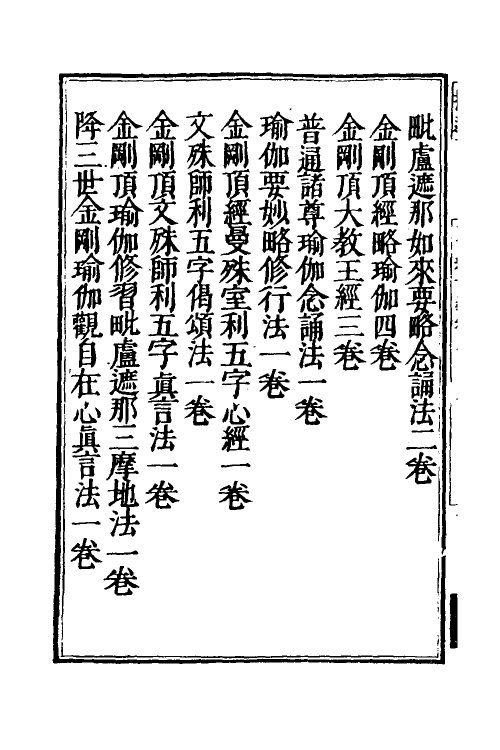 毗盧遮那如來要略念誦法二卷
金剛頂經略瑜伽四卷
金剛頂大教王經三卷
普通諸尊瑜伽念誦法一卷
瑜伽要妙略修行法一卷
金剛頂經曼殊室利五字心經一卷
文殊師利五字偈頌法一卷
金剛頂文殊師利五字眞言法一卷
金剛頂瑜伽修習毗盧遮那三摩地法一卷
降三世金剛瑜伽觀自在心眞言法一卷